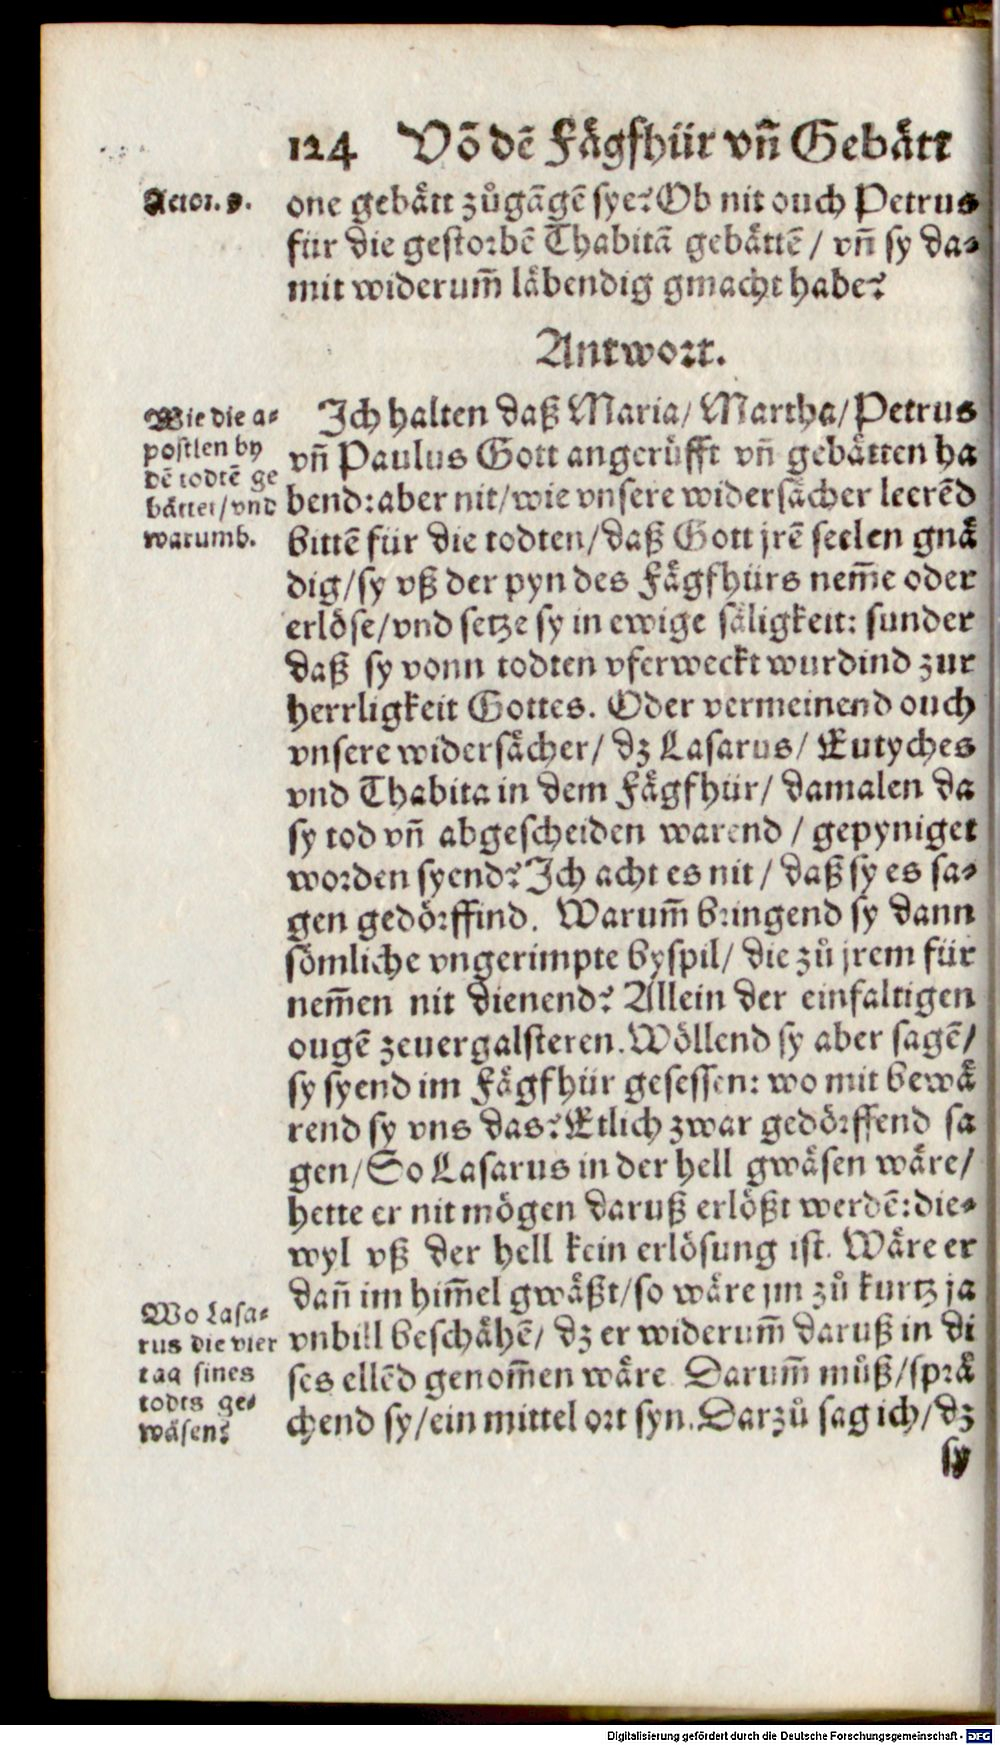 124 Võ dẽ Fägfhür vñ Gebätt
Actor. 9.
one gebätt zůgãgẽ sye? Ob nit ouch Petrus
für die gestorbẽ Thabitã gebättẽ / vñ sy da⸗
mit widerum̃ läbendig gmacht habe?
Antwort.
Wie die a⸗
postlen by
dẽ todtẽ ge
bättet / vnd
warumb.
Ich halten daß Maria / Martha / Petrus
vñ Paulus Gott angerüfft vñ gebätten ha
bend: aber nit / wie vnsere widersächer leerẽd
bittẽ für die todten / daß Gott jrẽ seelen gnä
dig / sy vß der pyn des Fägfhürs nem̃e oder
erlöse / vnd setze sy in ewige säligkeit: sunder
daß sy vonn todten vferweckt wurdind zur
herrligkeit Gottes. Oder vermeinend ouch
vnsere widersächer / dz Lasarus / Eutyches
vnd Thabita in dem Fägfhür / damalen da
sy tod vñ abgescheiden warend / gepyniget
worden syend? Ich acht es nit / daß sy es sa⸗
gen gedörffind. Warum̃ bringend sy dann
sömliche vngerimpte byspil / die zů jrem für
nem̃en nit dienend? Allein der einfaltigen
ougẽ zeuergalsteren. Wöllend sy aber sagẽ /
sy syend im Fägfhür gesessen: wo mit bewä
rend sy vns das? Etlich zwar gedörffend sa
gen / So Lasarus in der hell gwäsen wäre /
hette er nit mögen daruß erlößt werdẽ: die⸗
wyl vß der hell kein erlösung ist. Wäre er
dañ im him̃el gwäßt / so wäre jm zů kurtz ja
Wo Lasa⸗
rus die vier
tag sines
todts ge⸗
wäsen?
vnbill beschähẽ / dz er widerum̃ daruß in di
ses ellẽd genom̃en wäre. Darum̃ můß / sprä
chend sy / ein mittel ort syn. Darzů sag ich / dz
sy
Digitalisierung gefördert durch die Deutsche Forschungsgemeinschaft - DFG